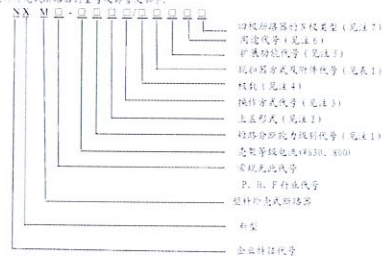 NX M□-□□□□/□□□□
四极断路器的N极类型(见注7)
用途代号(见注6)
扩展功能代号(见注5)
脱扣器方式及附件代号(见表1)
极数(见注4)
操作方式代号(见注3)
上盖形式(见注2)
短路分断能力级别代号(见注1)
壳架等级电流(#630、800)
常规无此代号
P、H、F行业代号
塑料外壳式断路器
新型
企业特征代号